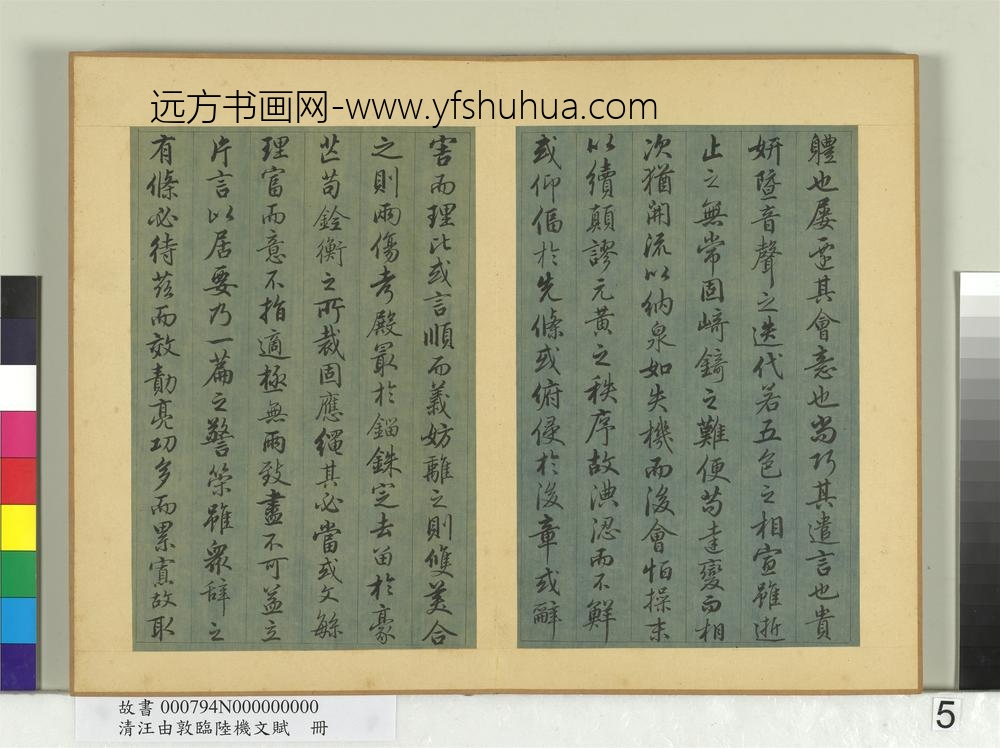 远方书画网-www.yfshuhua.com
體也屢遷其會意也尚巧其遣言也貴
妍暨音聲之迭代若五色之相宣雖逝
止之無常固崎錡之難便苟達變而相
次猶開流以納泉如失機而後會恒操末
以續顛謬元黃之秩序故淟涊而不鮮
或仰偪於先條或俯侵於後章或辭
害而理比或言順而義妨離之則雙美合
之則兩傷考殿最於錙銖定去留於豪
芒苟銓衡之所裁固應繩其必當或文繁
理富而意不指適極無兩致盡不可益立
片言以居要乃一篇之警策雖眾辭之
有條必待茲而效勣亮功多而累寡故取
故書 000794N000000000
清汪由敦臨陸機文賦 冊
5